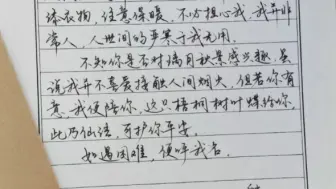 添衣物，注意保暖，不必担心我，我并非
常人，人世间的严寒于我无用。
不知你是否对摘月秋景感兴趣，虽
说我并不喜爱接触人间烟火，但若你有
意，我便陪你，这只梧桐树叶蝶给你，
此乃仙诺，可护你平安。
如遇困难，便呼我名。